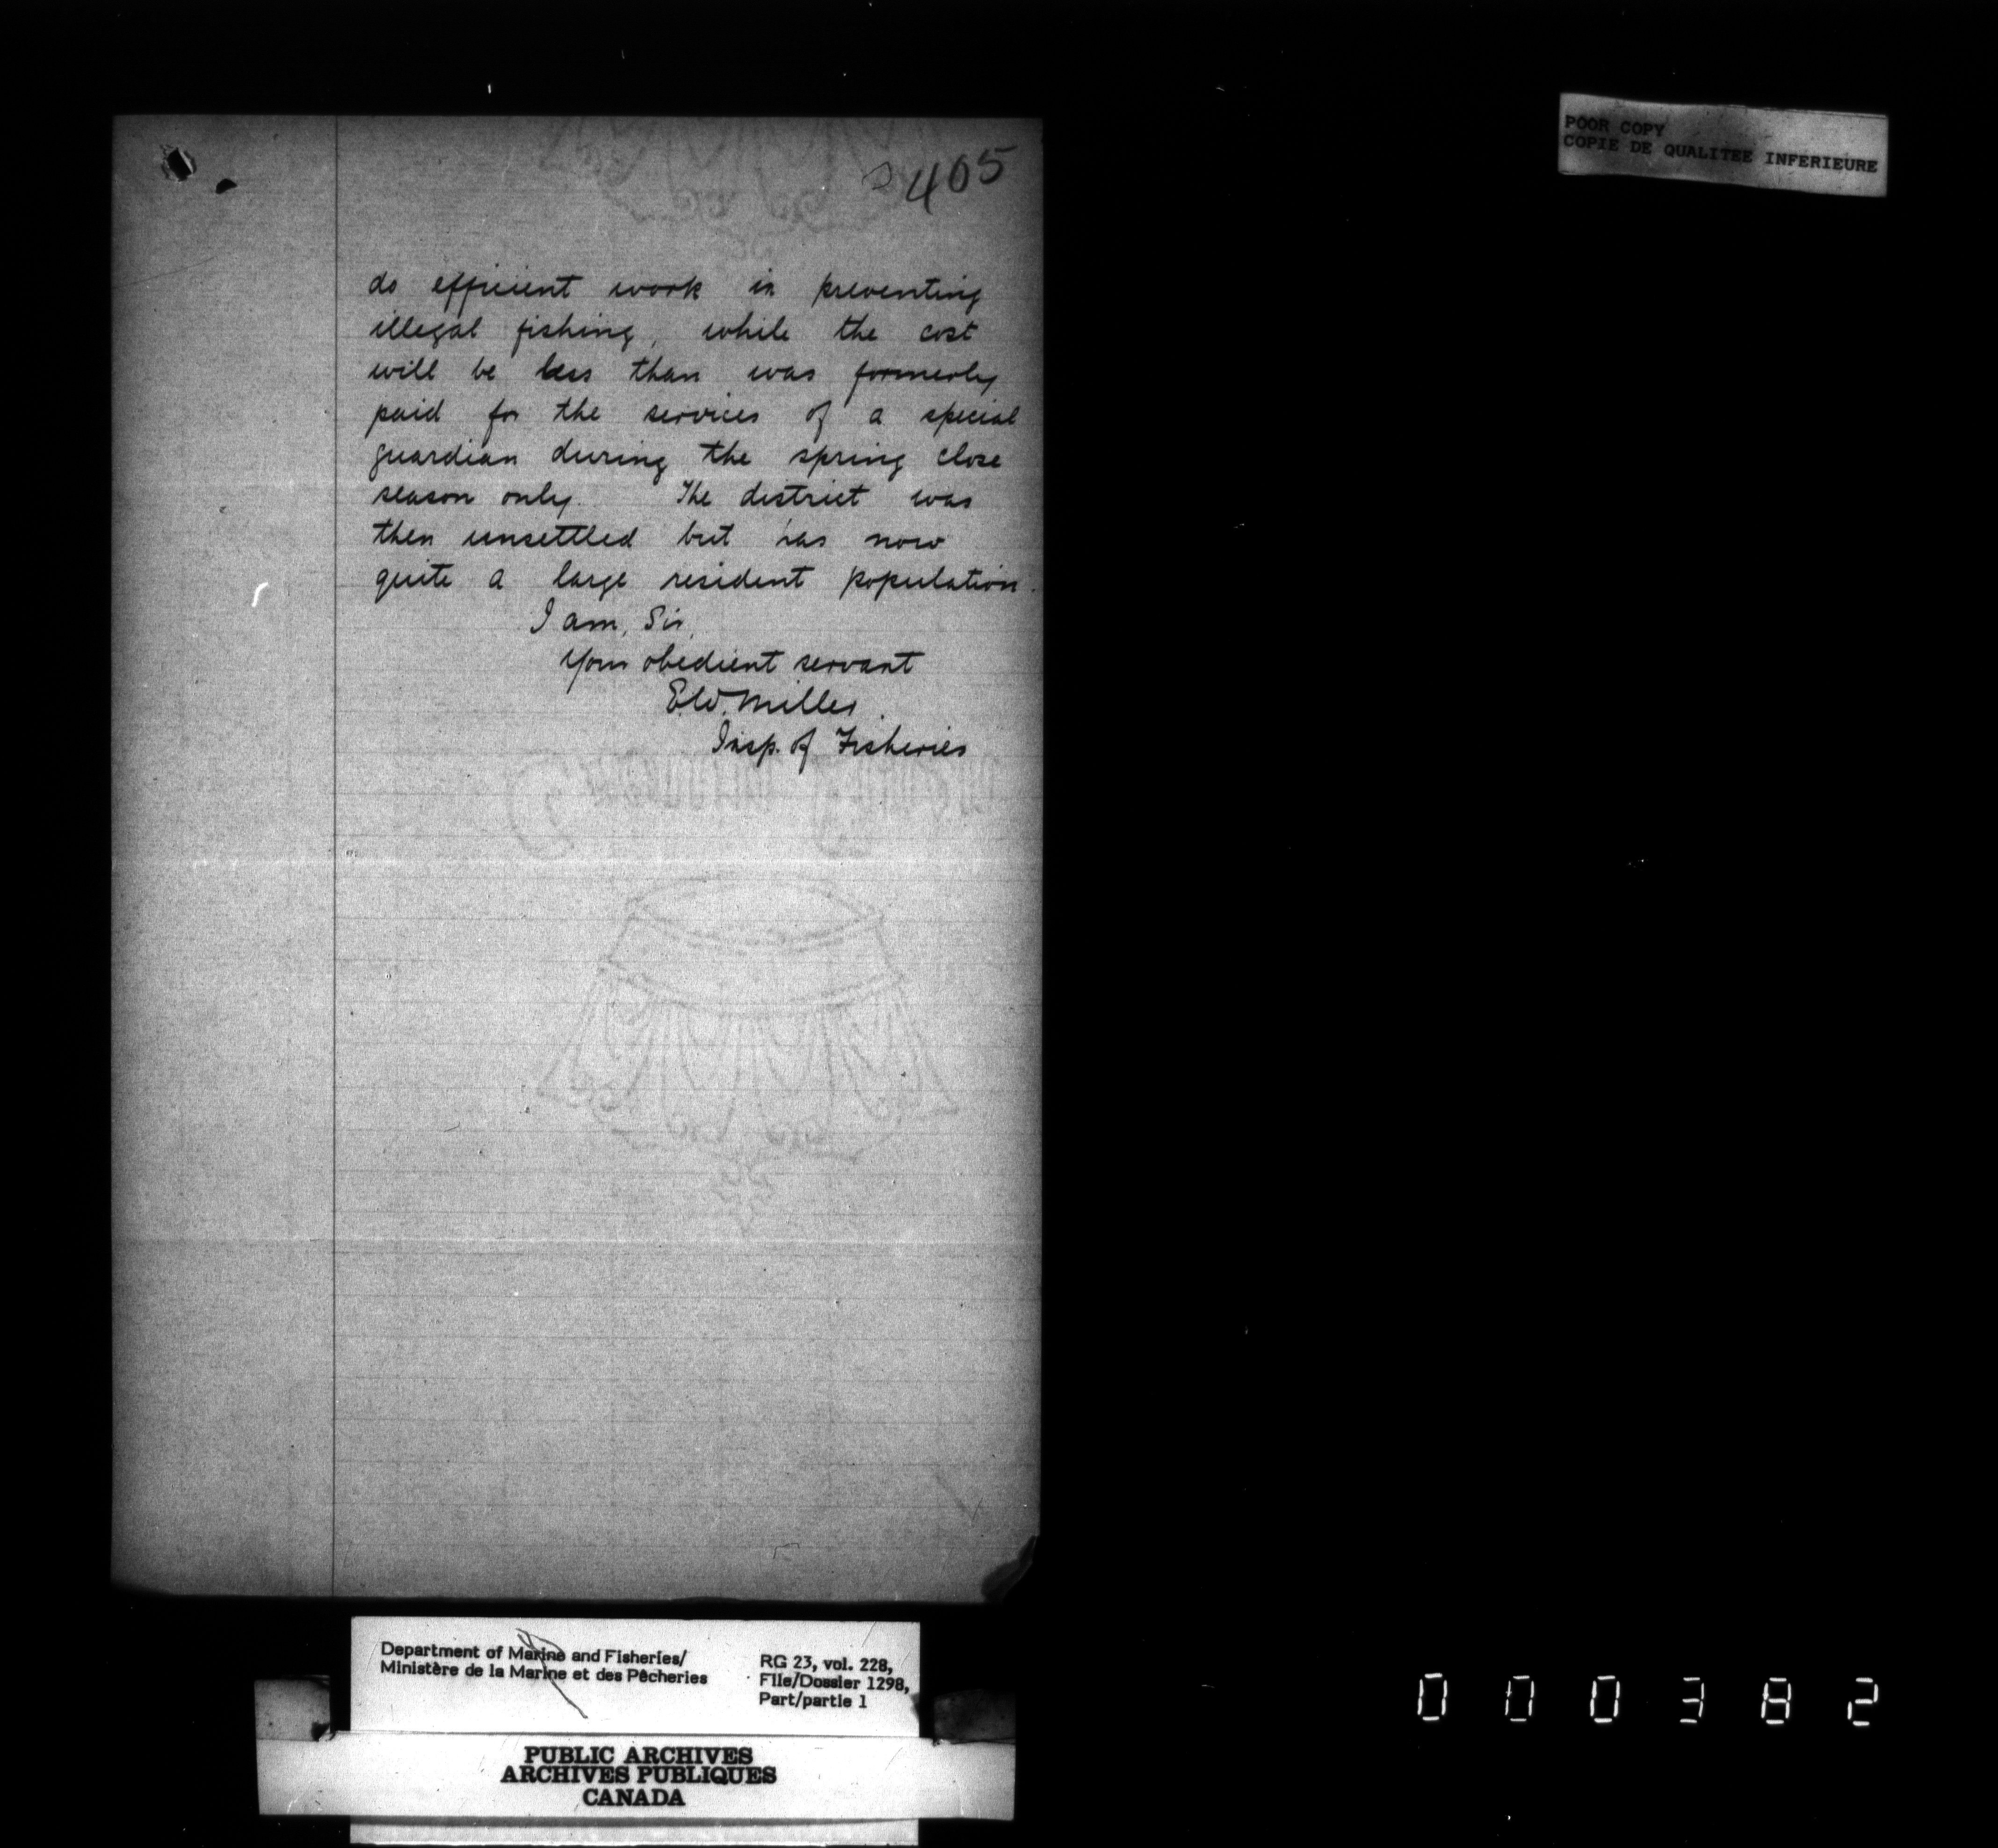 405
POOR COPY
COPIE DE QUALITEE INFERIEURE
do efficient work in preventing
illegal fishing, while the cost
will be less than was formerly
paid for the services of a special
guardian during the spring close
season only. The district was
then unsettled but has now
quite a large resident population.
I am, Sir,
Your obedient servant
E.W. Miller
Insp. of Fisheries
Department of Marine and Fisheries/
Ministère de la Marine et des Pêcheries
RG 23, vol. 228,
File/Dossier 1298,
Part/partie 1
PUBLIC ARCHIVES
ARCHIVES PUBLIQUES
CANADA
000382